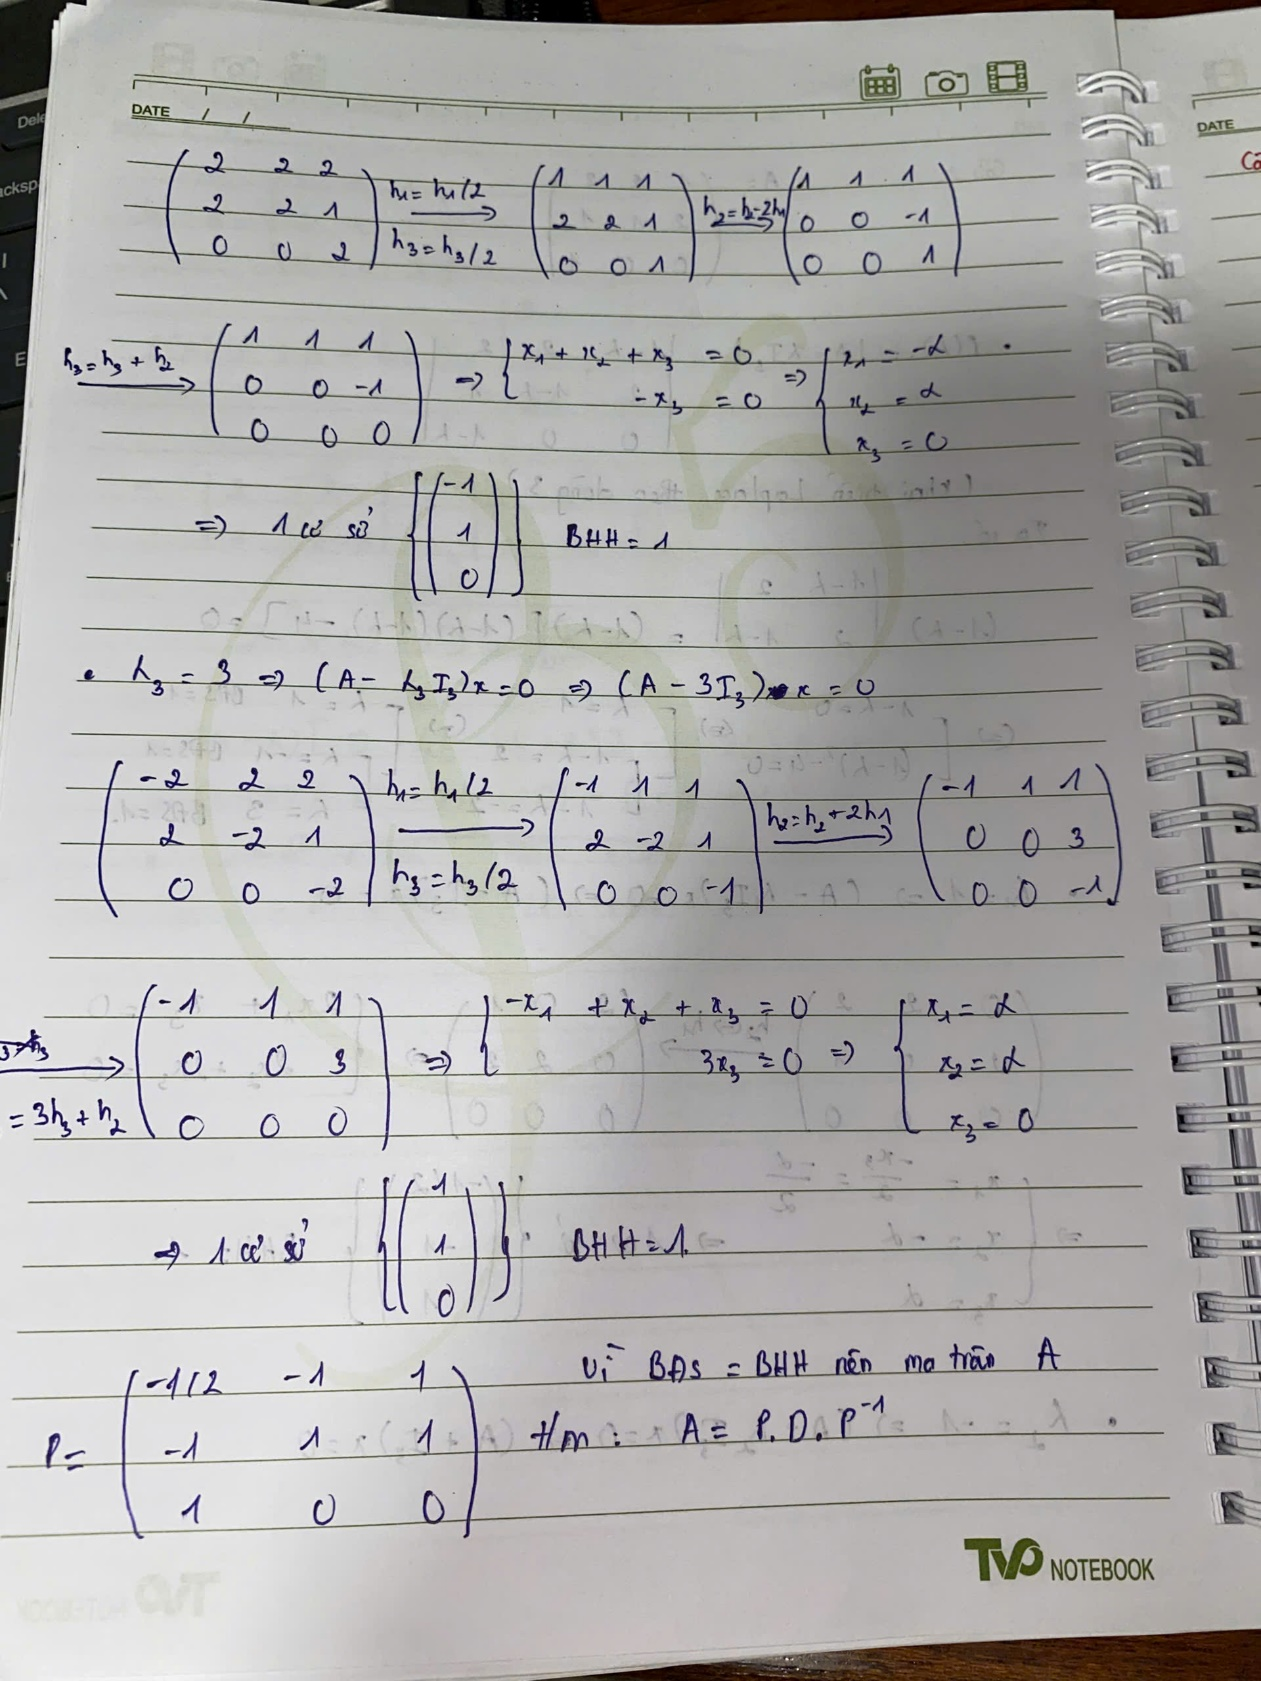 DATE / /
DATE
( 2 2 2 ; 2 2 1 ; 0 0 2 ) h₁=h₁/2 h₃=h₃/2 → ( 1 1 1 ; 2 2 1 ; 0 0 1 ) h₂=h₂-2h₁ → ( 1 1 1 ; 0 0 -1 ; 0 0 1 )
h₃=h₃+h₂ → ( 1 1 1 ; 0 0 -1 ; 0 0 0 ) ⇒ { x₁ + x₂ + x₃ = 0 ; -x₃ = 0 ⇒ { x₁ = -α ; x₂ = α ; x₃ = 0
⇒ 1 cơ sở { ( -1 ; 1 ; 0 ) } BHH = 1
• λ₃ = 3 ⇒ (A - λ₃I₃)x = 0 ⇒ (A - 3I₃)x = 0
( -2 2 2 ; 2 -2 1 ; 0 0 -2 ) h₁=h₁/2 h₃=h₃/2 → ( -1 1 1 ; 2 -2 1 ; 0 0 -1 ) h₂=h₂+2h₁ → ( -1 1 1 ; 0 0 3 ; 0 0 -1 )
→ = 3h₃+h₂ ( -1 1 1 ; 0 0 3 ; 0 0 0 ) ⇒ { -x₁ + x₂ + x₃ = 0 ; 3x₃ = 0 ⇒ { x₁ = α ; x₂ = α ; x₃ = 0
⇒ 1 cơ sở { ( 1 ; 1 ; 0 ) } BHH = 1.
P = ( -1/2 -1 1 ; -1 1 1 ; 1 0 0 )
Vì BĐS = BHH nên ma trận A
t/m : A = P.D.P⁻¹
TVP NOTEBOOK